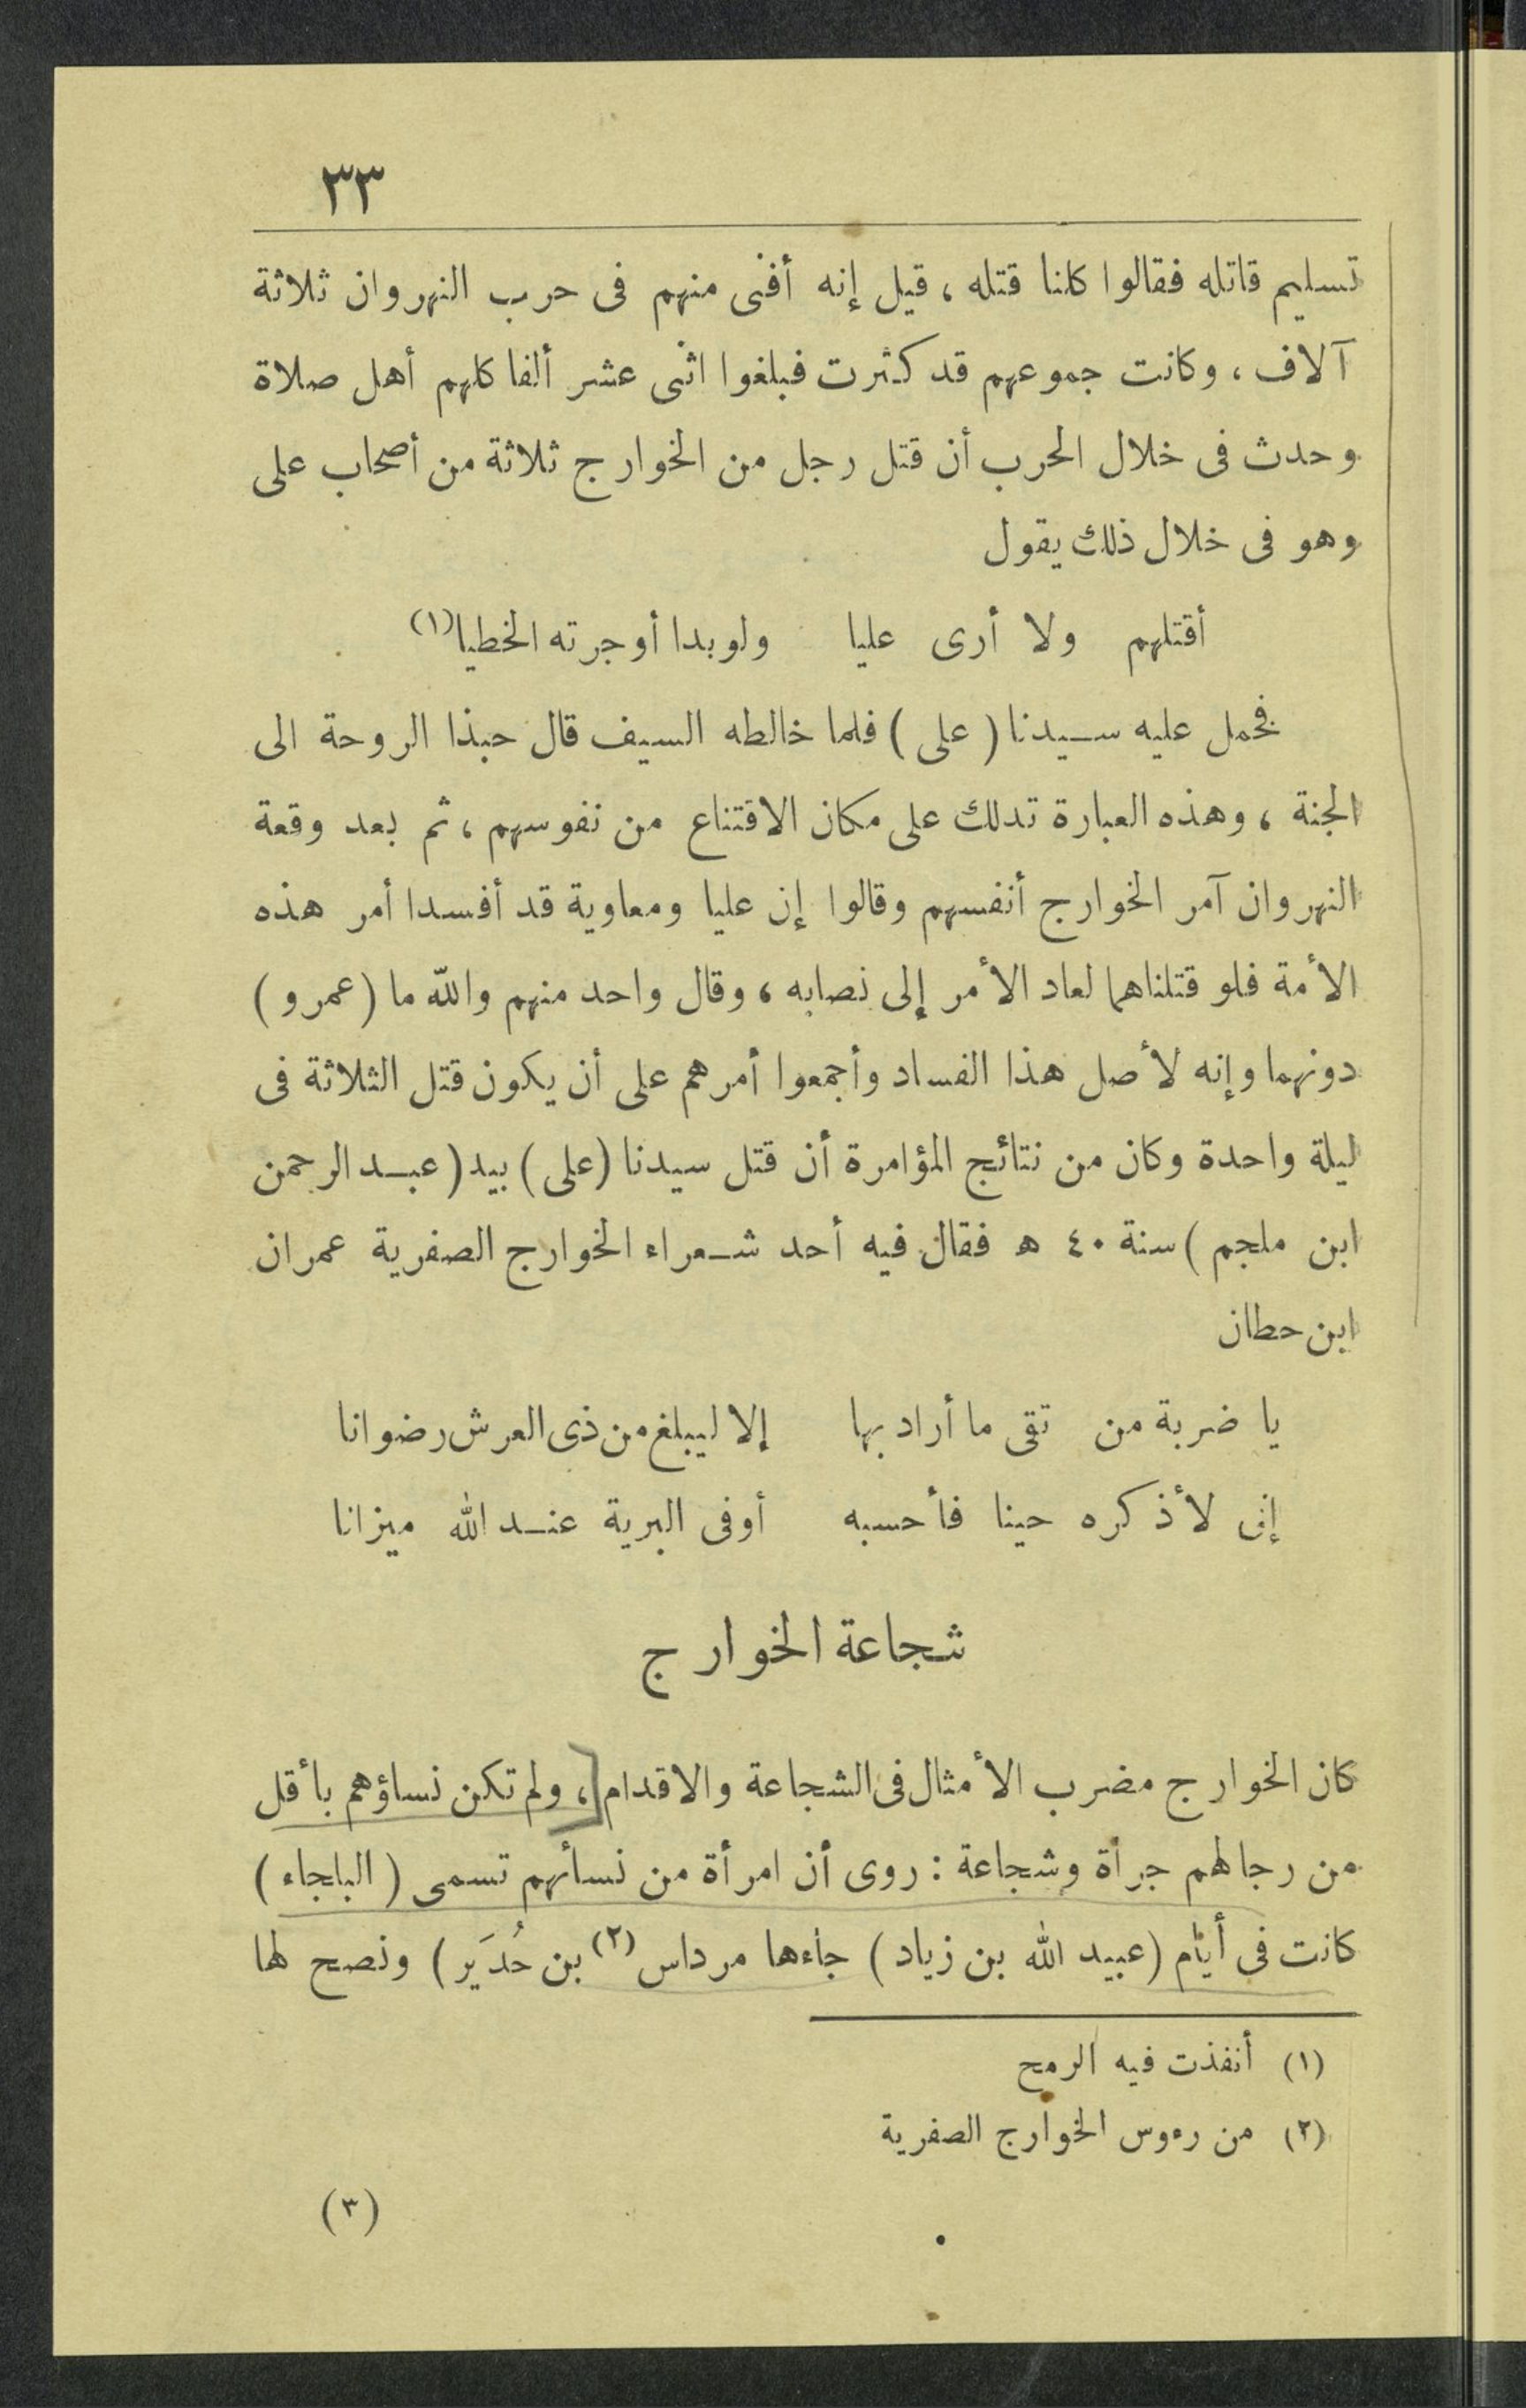 ٣٣
تسليم قاتله فقالوا كلنا قتله ، قيل إنه أفنى منهم فى حرب النهروان ثلاثة
آلاف ، وكانت جموعهم قد كثرت فبلغوا اثنى عشر ألفا كلهم أهل صلاة
وحدث فى خلال الحرب أن قتل رجل من الخوارج ثلاثة من أصحاب على
وهو فى خلال ذلك يقول
أقتلهم ولا أرى عليا ولو بدا أوجرته الخطيا (١)
فحمل عليه سيدنا ( على ) فلما خالطه السيف قال حبذا الروحة الى
الجنة ، وهذه العبارة تدلك على مكان الاقتناع من نفوسهم ، ثم بعد وقعة
النهروان آمر الخوارج أنفسهم وقالوا إن عليا ومعاوية قد أفسدا أمر هذه
الأمة فلو قتلناهما لعاد الأمر إلى نصابه ، وقال واحد منهم والله ما ( عمرو )
دونهما وإنه لأصل هذا الفساد وأجمعوا أمرهم على أن يكون قتل الثلاثة فى
ليلة واحدة وكان من نتائج المؤامرة أن قتل سيدنا ( على ) بيد ( عبد الرحمن
ابن ملجم ) سنة ٤٠ ه فقال فيه أحد شعراء الخوارج الصفرية عمران
ابن حطان
يا ضربة من تقى ما أراد بها إلا ليبلغ من ذى العرش رضوانا
إنى لأذكره حينا فأحسبه أوفى البرية عند الله ميزانا
شجاعة الخوارج
كان الخوارج مضرب الأمثال فى الشجاعة والاقدام ، ولم تكن نساؤهم بأقل
من رجالهم جرأة وشجاعة : روى أن امرأة من نسائهم تسمى ( البلجاء )
كانت فى أيام ( عبيد الله بن زياد ) جاءها مرداس (٢) بن حُدَير ) ونصح لها
(١) أنفذت فيه الرمح
(٢) من رءوس الخوارج الصفرية
(٣)